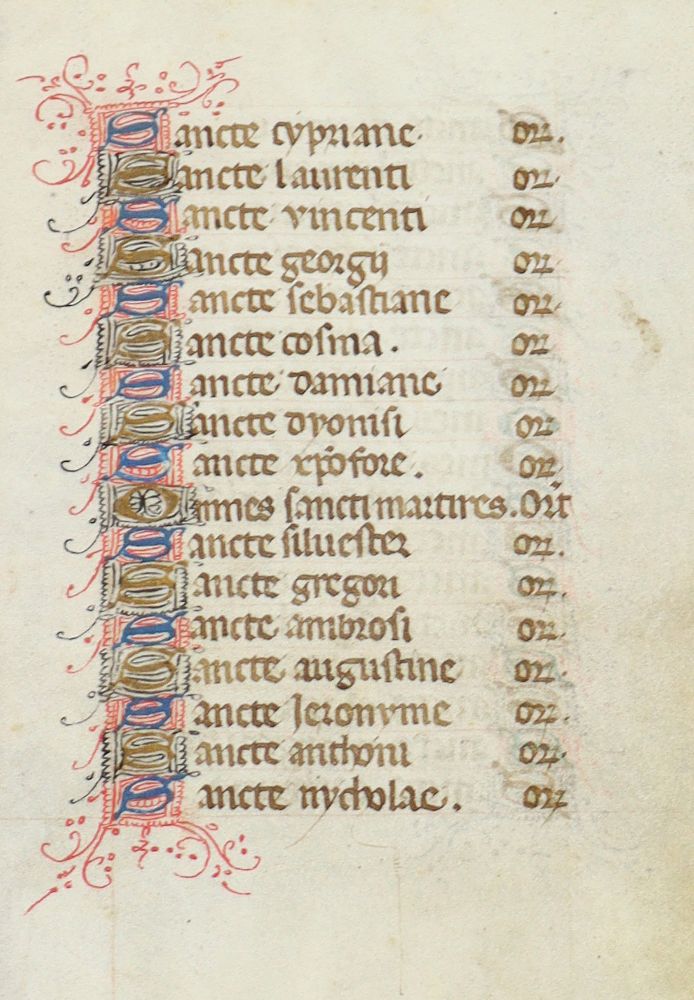 Sancte cypriane. or.
Sancte laurenti or.
Sancte vincenti or.
Sancte georgij or.
Sancte sebastiane or.
Sancte cosma. or.
Sancte damiane or.
Sancte dyonisi or.
Sancte xp̄ofore. or.
Omnes sancti martires. Ort
Sancte siluester or.
Sancte gregori or.
Sancte ambrosi or.
Sancte augustine or.
Sancte Jeronyme or.
Sancte anthoni or.
Sancte nycholae. or.